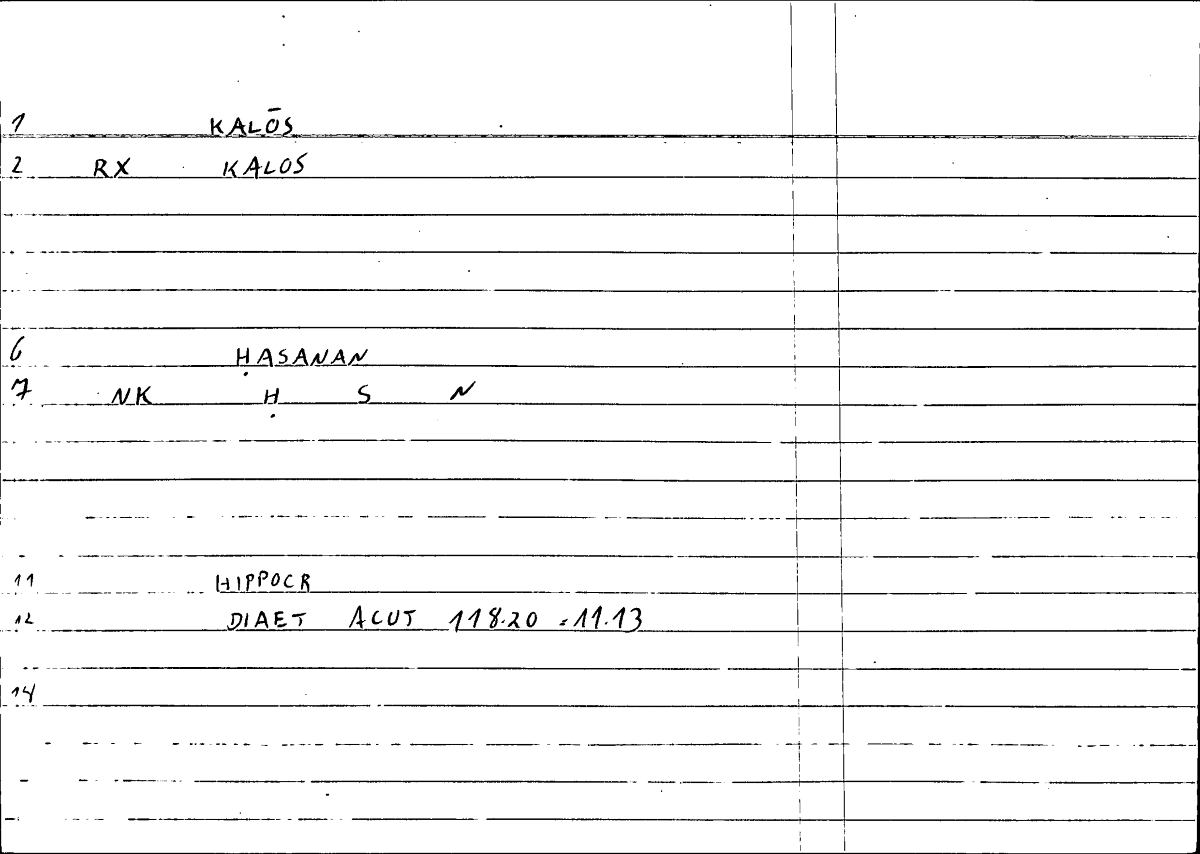 1 KALŌS
2 RX KALOS
6 ḤASANAN
7 NK Ḥ S N
11 HIPPOCR
12 DIAET ACUT 118.20 = 11.13
14